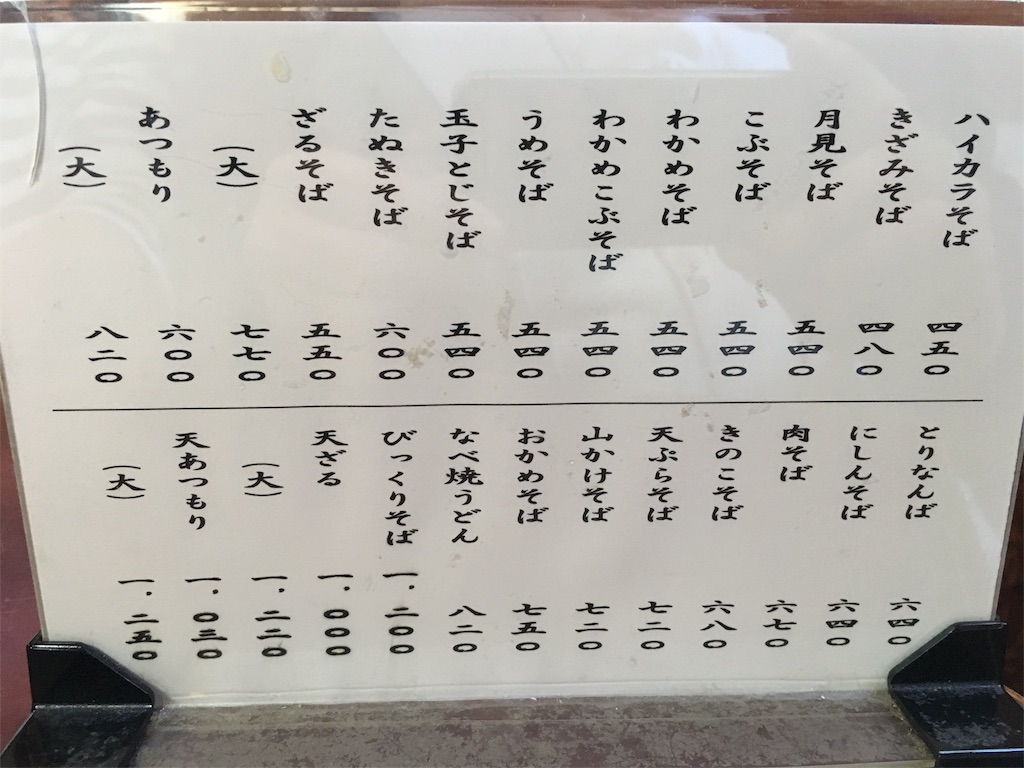 ハイカラそば 四五〇
きざみそば 四八〇
月見そば 五四〇
こぶそば 五四〇
わかめそば 五四〇
わかめこぶそば 五四〇
うめそば 五四〇
玉子とじそば 五四〇
たぬきそば 六〇〇
ざるそば 五五〇
（大） 七七〇
あつもり 六〇〇
（大） 八二〇
とりなんば 六四〇
にしんそば 六四〇
肉そば 六七〇
きのこそば 六八〇
天ぷらそば 七二〇
山かけそば 七二〇
おかめそば 七五〇
なべ焼うどん 八二〇
びっくりそば 一.二〇〇
天ざる 一.〇〇〇
（大） 一.二二〇
天あつもり 一.〇三〇
（大） 一.二五〇